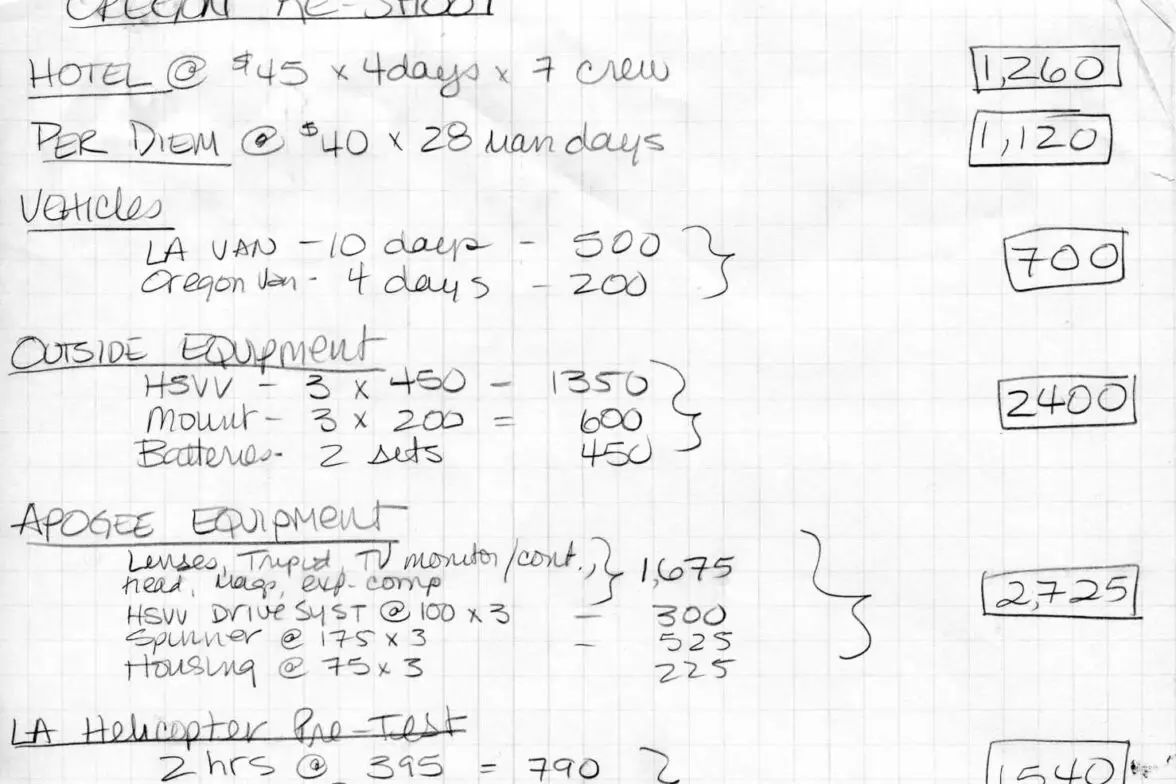 OREGON RE-SHOOT
HOTEL @ $45 x 4days x 7 crew 1,260
PER DIEM @ $40 x 28 man days 1,120
Vehicles
LA VAN - 10 days - 500
Oregon Van - 4 days - 200 700
OUTSIDE EQUIPMENT
HSVV - 3 x 450 - 1350
Mount - 3 x 200 = 600 2400
Batteries - 2 sets 450
APOGEE EQUIPMENT
Lenses, Tripod, TV monitor/cont., 1,675
head, Mags, exp. comp
HSVV DRIVE SYST @ 100 x 3 - 300 2,725
Spinner @ 175 x 3 - 525
Housing @ 75 x 3 225
LA Helicopter Pre-Test
2 hrs @ 395 = 790 1,540